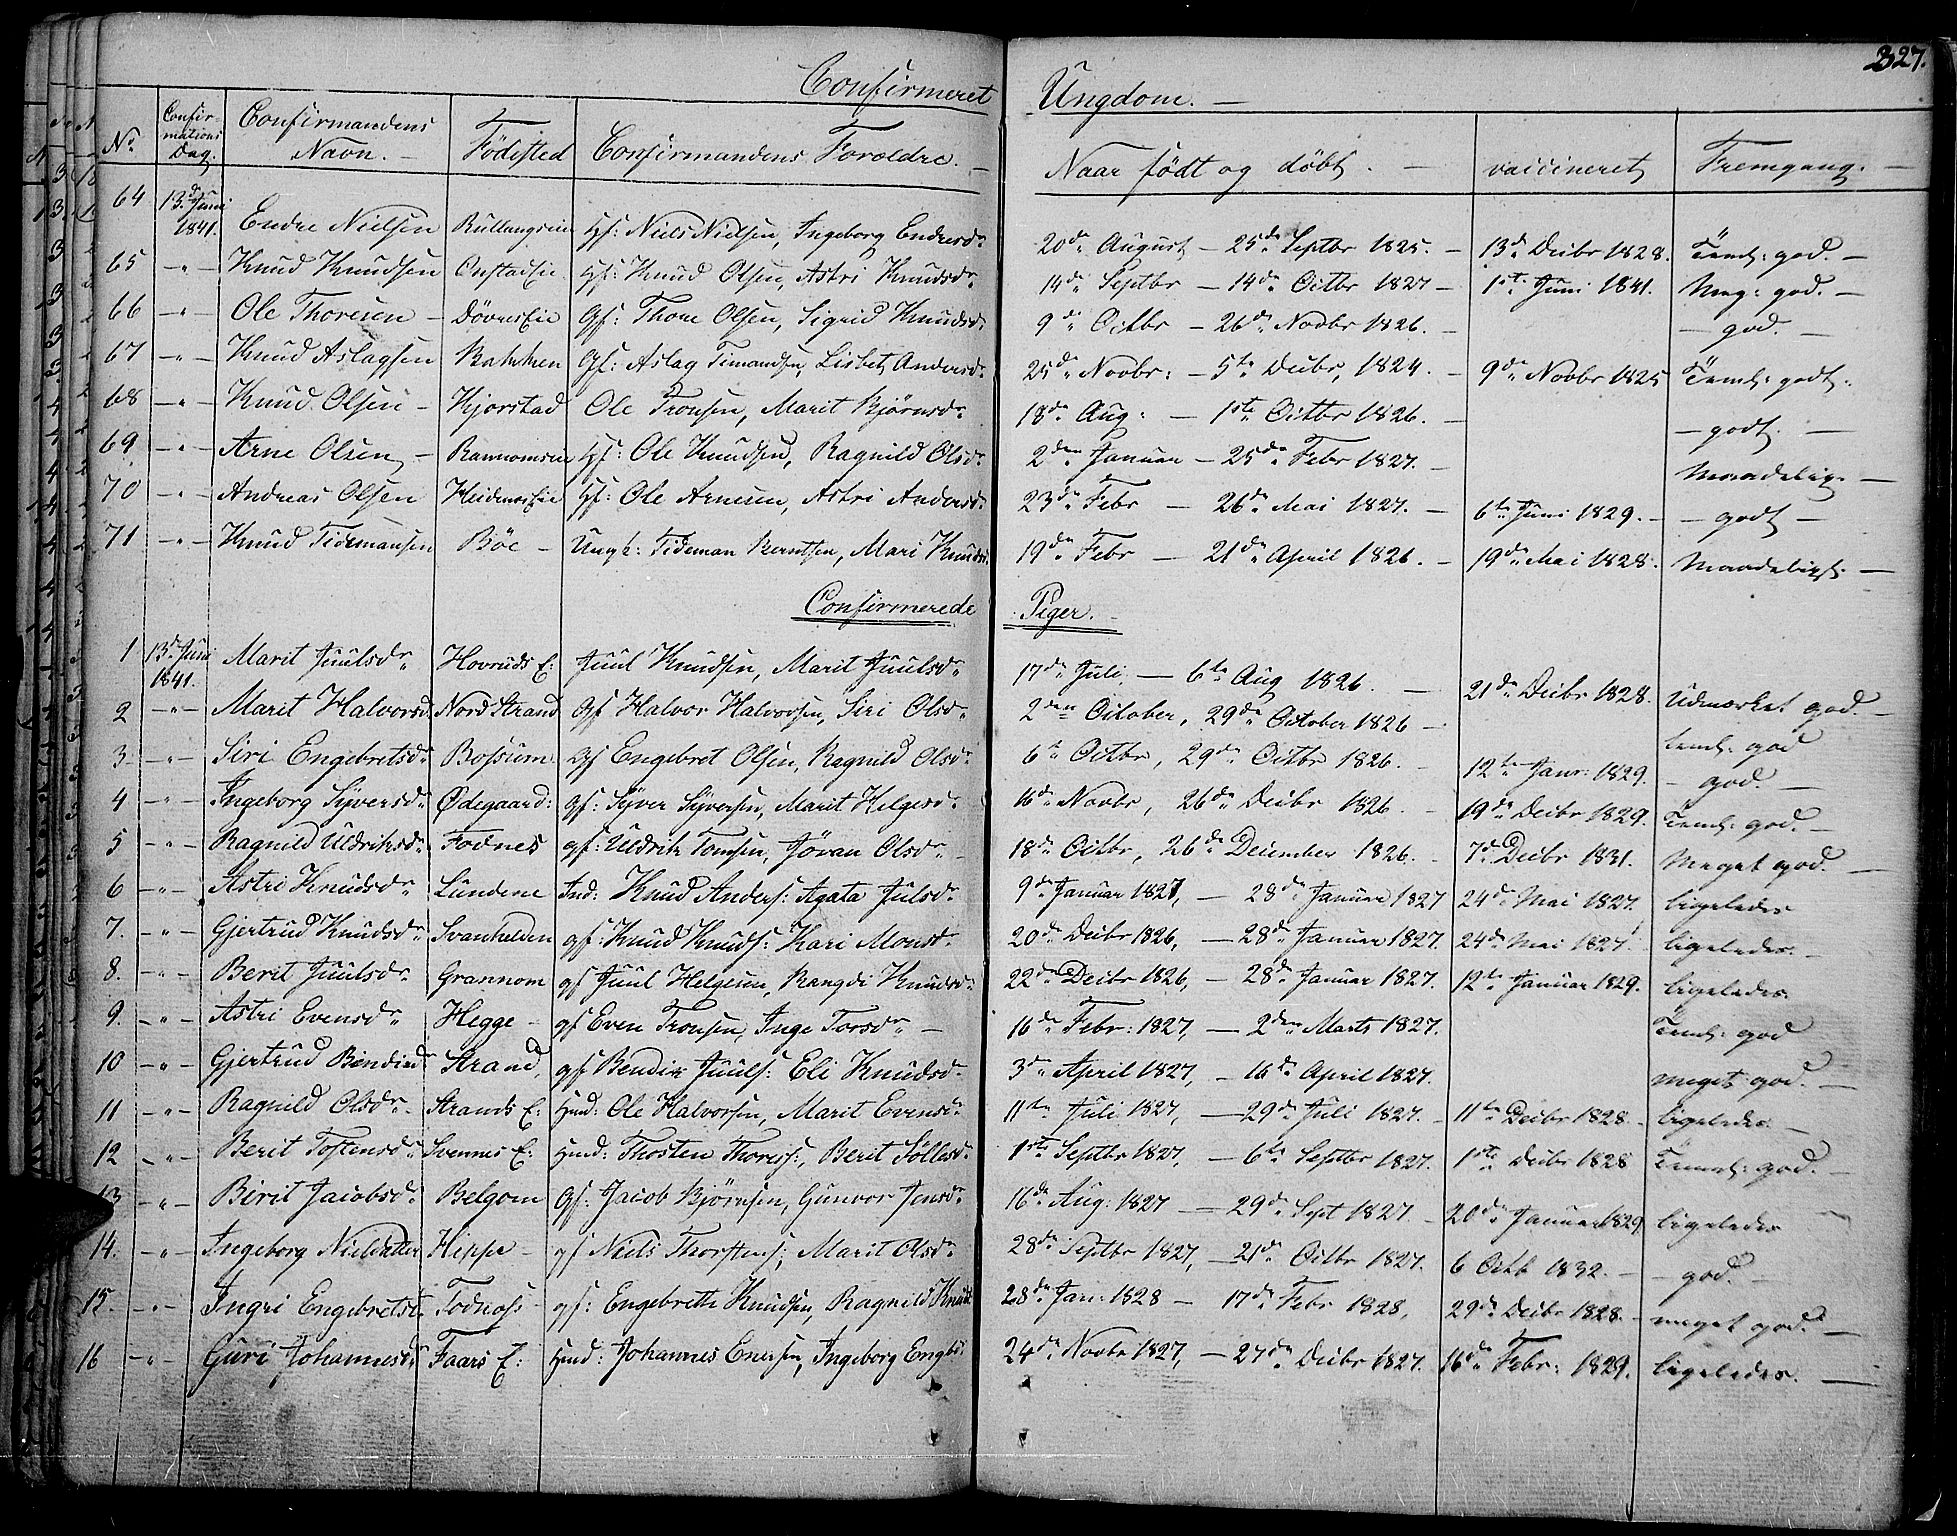 327.
Confirmeret Ungdom. —
No. Confirmations Dag. Confirmandens Navn. — Födested Confirmandens Forældre. — Naar födt og döbt. — vaccineret Fremgang. —
64 13de Juni 1841. Endre Nielsen Hf: Niels Nielsen, Ingeborg Endresdr 20de August — 25de Septbr 1825. — 13de Decbr 1828. Teml: god. —
65 —"— Knud Knudsen Onstadeie Hf: Knud Olsen, Astri Knudsdr 14de Septbr — 14de Octbr 1827 — 1ste Juni 1841. Meg: god. —
66 —"— Ole Thoresen — Dövreseie Gf: Thore Olsen, Sigrid Knudsdr 9de Octbr — 26de Novbr 1826. — — god. —
67 —"— Knud Aslagsen Bakken Gf: Aslag Timandsen, Lisbet Andersdr 25de Novbr: — 5te Decbr, 1824. — 9de Novbr 1825 Teml: godt.
68 —"— Knud Olsen — Kjorstad Ole Tronsen, Marit Björnsdr 18de Aug: — 1ste Octbr 1826. — — godt. —
69 —"— Arne Olsen — Hf: Ole Knudsen, Ragnild Olsdr 2den Januar — 25de Febr 1827. — Maadelig. —
70 —"— Andreas Olsen Heidenseie Hf: Ole Arnesen, Astri Andersdr 23de Febr — 26de Mai 1827. — 6te Juni 1829. — — godt —
71 —"— Knud Tidemansen Böe — Ungk: Tideman Berntsen, Mari Knudsd 19de Febr — 21de April 1826. — 19de Mai 1828. Maadeligt. —
Confirmerede Piger. —
1 13de Juni 1841. Marit Juulsdr Hovruds E: Juul Knudsen, Marit Juulsdr 17de Juli — 6te Aug 1826. — 21de Decbr 1828. Udmærket god. —
2 —"— Marit Halvorsd. Nord Strand Gf Halvor Halvorsen, Siri Olsdr 2den October, 29de October 1826 — teml: god
3 —"— Siri Engebretsdr Bossum Gf Engebret Olsen, Ragnild Olsdr 6te Octbr, 29de Octbr 1826. — 12te Janr: 1829. — god. —
4 —"— Ingeborg Syversdr Ødegaard: gf: Syver Syversen, Marit Helgesdr 16de Novbr, 26de Decbr 1826 — 19de Decbr 1829. Teml: god. —
5 —"— Ragnild Uldriksdr Fodnes gf: Uldrik Tomsen, Jöran Olsdr — 18de Octbr, 26de December 1826. — 7de Decbr 1831. Meget god. —
6 —"— Astri Knudsdr Lundene Ind: Knud Anders: Agata Julsdr 9de Januar 1827, — 28de Januar 1827 24de Mai 1827. ligeledes
7. —"— Gjertrud Knudsdr Svanhelden gf: Knud Knuds: Kari Monsdr 20de Decbr 1826, — 28de Januar 1827. 24de Mai 1827. ligeledes. —
8. —"— Berit Juulsdr Grannom gf Juul Helgesen, Rangdi Knudsdr 22de Decbr 1826, — 28de Januar 1827. 12te Januar 1829. ligeledes.
9. —"— Astri Evensdr Hegge — gf Even Tronsen, Inge Torsdr — 16de Febr: 1827, — 2den Marts 1827. Teml: god
10 —"— Gjertrud Bendixdr Strand, gf. Bendix Juuls: Eli Knudsdr 3de April 1827, — 16de April 1827. meget god. —
11 —"— Ragnild Olsdr Strands E: Hmd: Ole Halvorsen, Marit Evensdr 11te Juli 1827, — 29de Juli 1827. — 11te Decbr 1828. — ligeledes. —
12 —"— Berit Tostensdr Svennes E: Hmd: Thosten Thoress:, Berit Söllesdr 1ste Septbr 1827, — 6te Septbr 1827. 1ste Decbr 1828 Teml: god. —
13 —"— Berit Jacobsdr Belgom Gf: Jacob Björnsen, Gunvor Jonsdr 16de Aug: 1827 — 29de Sept 1827. — 20de Januar 1829 ligeledes
14. —"— Ingeborg Nielsdatter Hippe — gf Niels Thorstens:, Marit Olsdr 28de Septbr 1827, — 21de Octbr 1827. 6 Octb 1832. — — god. —
15. —"— Ingri Engebretsd. Todnoss — gf: Engebrette Knudsen, Ragnild Knudsd 28de Jan: 1828 — 17de Febr 1828, 29de Decbr 1828. — meget god. —
16 —"— Guri Johannesdr Faars E: Hmd: Johannes Enersen, Ingeborg Engbr 24de Novbr 1827, — 27de Decbr 1827. 16de Febr: 1829. ligeledes. —